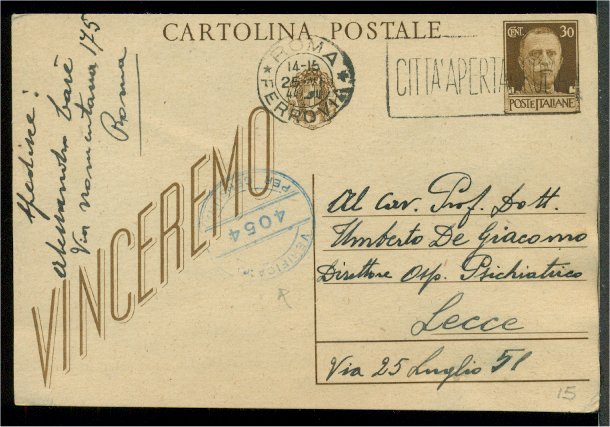 CARTOLINA POSTALE
CENT. 30
POSTE ITALIANE
ROMA
14-15
FERROVIA
CITTÀ APERTA
Spedisce:
Alessandro
Via nomentana 175
Roma
VINCEREMO
VERIFICATO PER
4054
Al Cav. Prof. Dott.
Umberto De Giacomo
Direttore Osp. Psichiatrico
Lecce
Via 25 Luglio 51
15